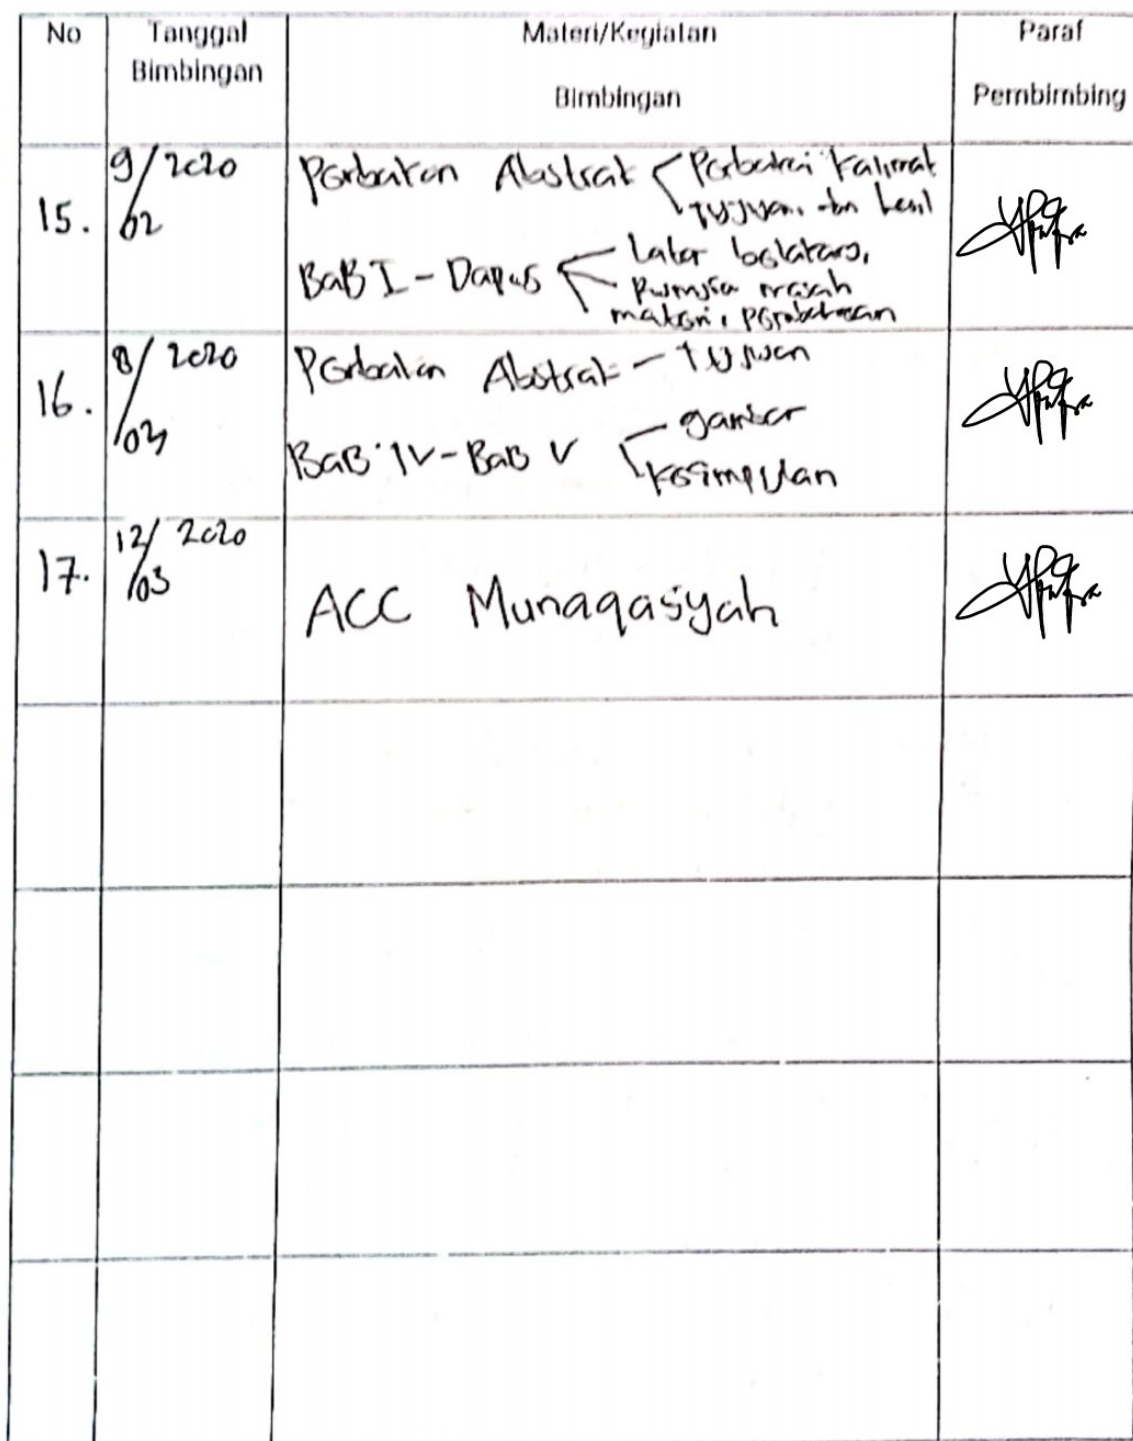 No Tanggal Bimbingan Materi/Kegiatan Bimbingan Paraf Pembimbing
15. 9/02 2020 Perbaikan Abstrak Perbaiki kalimat
tujuan, dan hasil
BaB I - Dapus Latar belakang,
rumusan masalah
materi, pembahasan
16. 8/03 2020 Perbaikan Abstrak - Tujuan
BaB IV - BaB V gambar
kesimpulan
17. 12/03 2020 ACC Munaqasyah